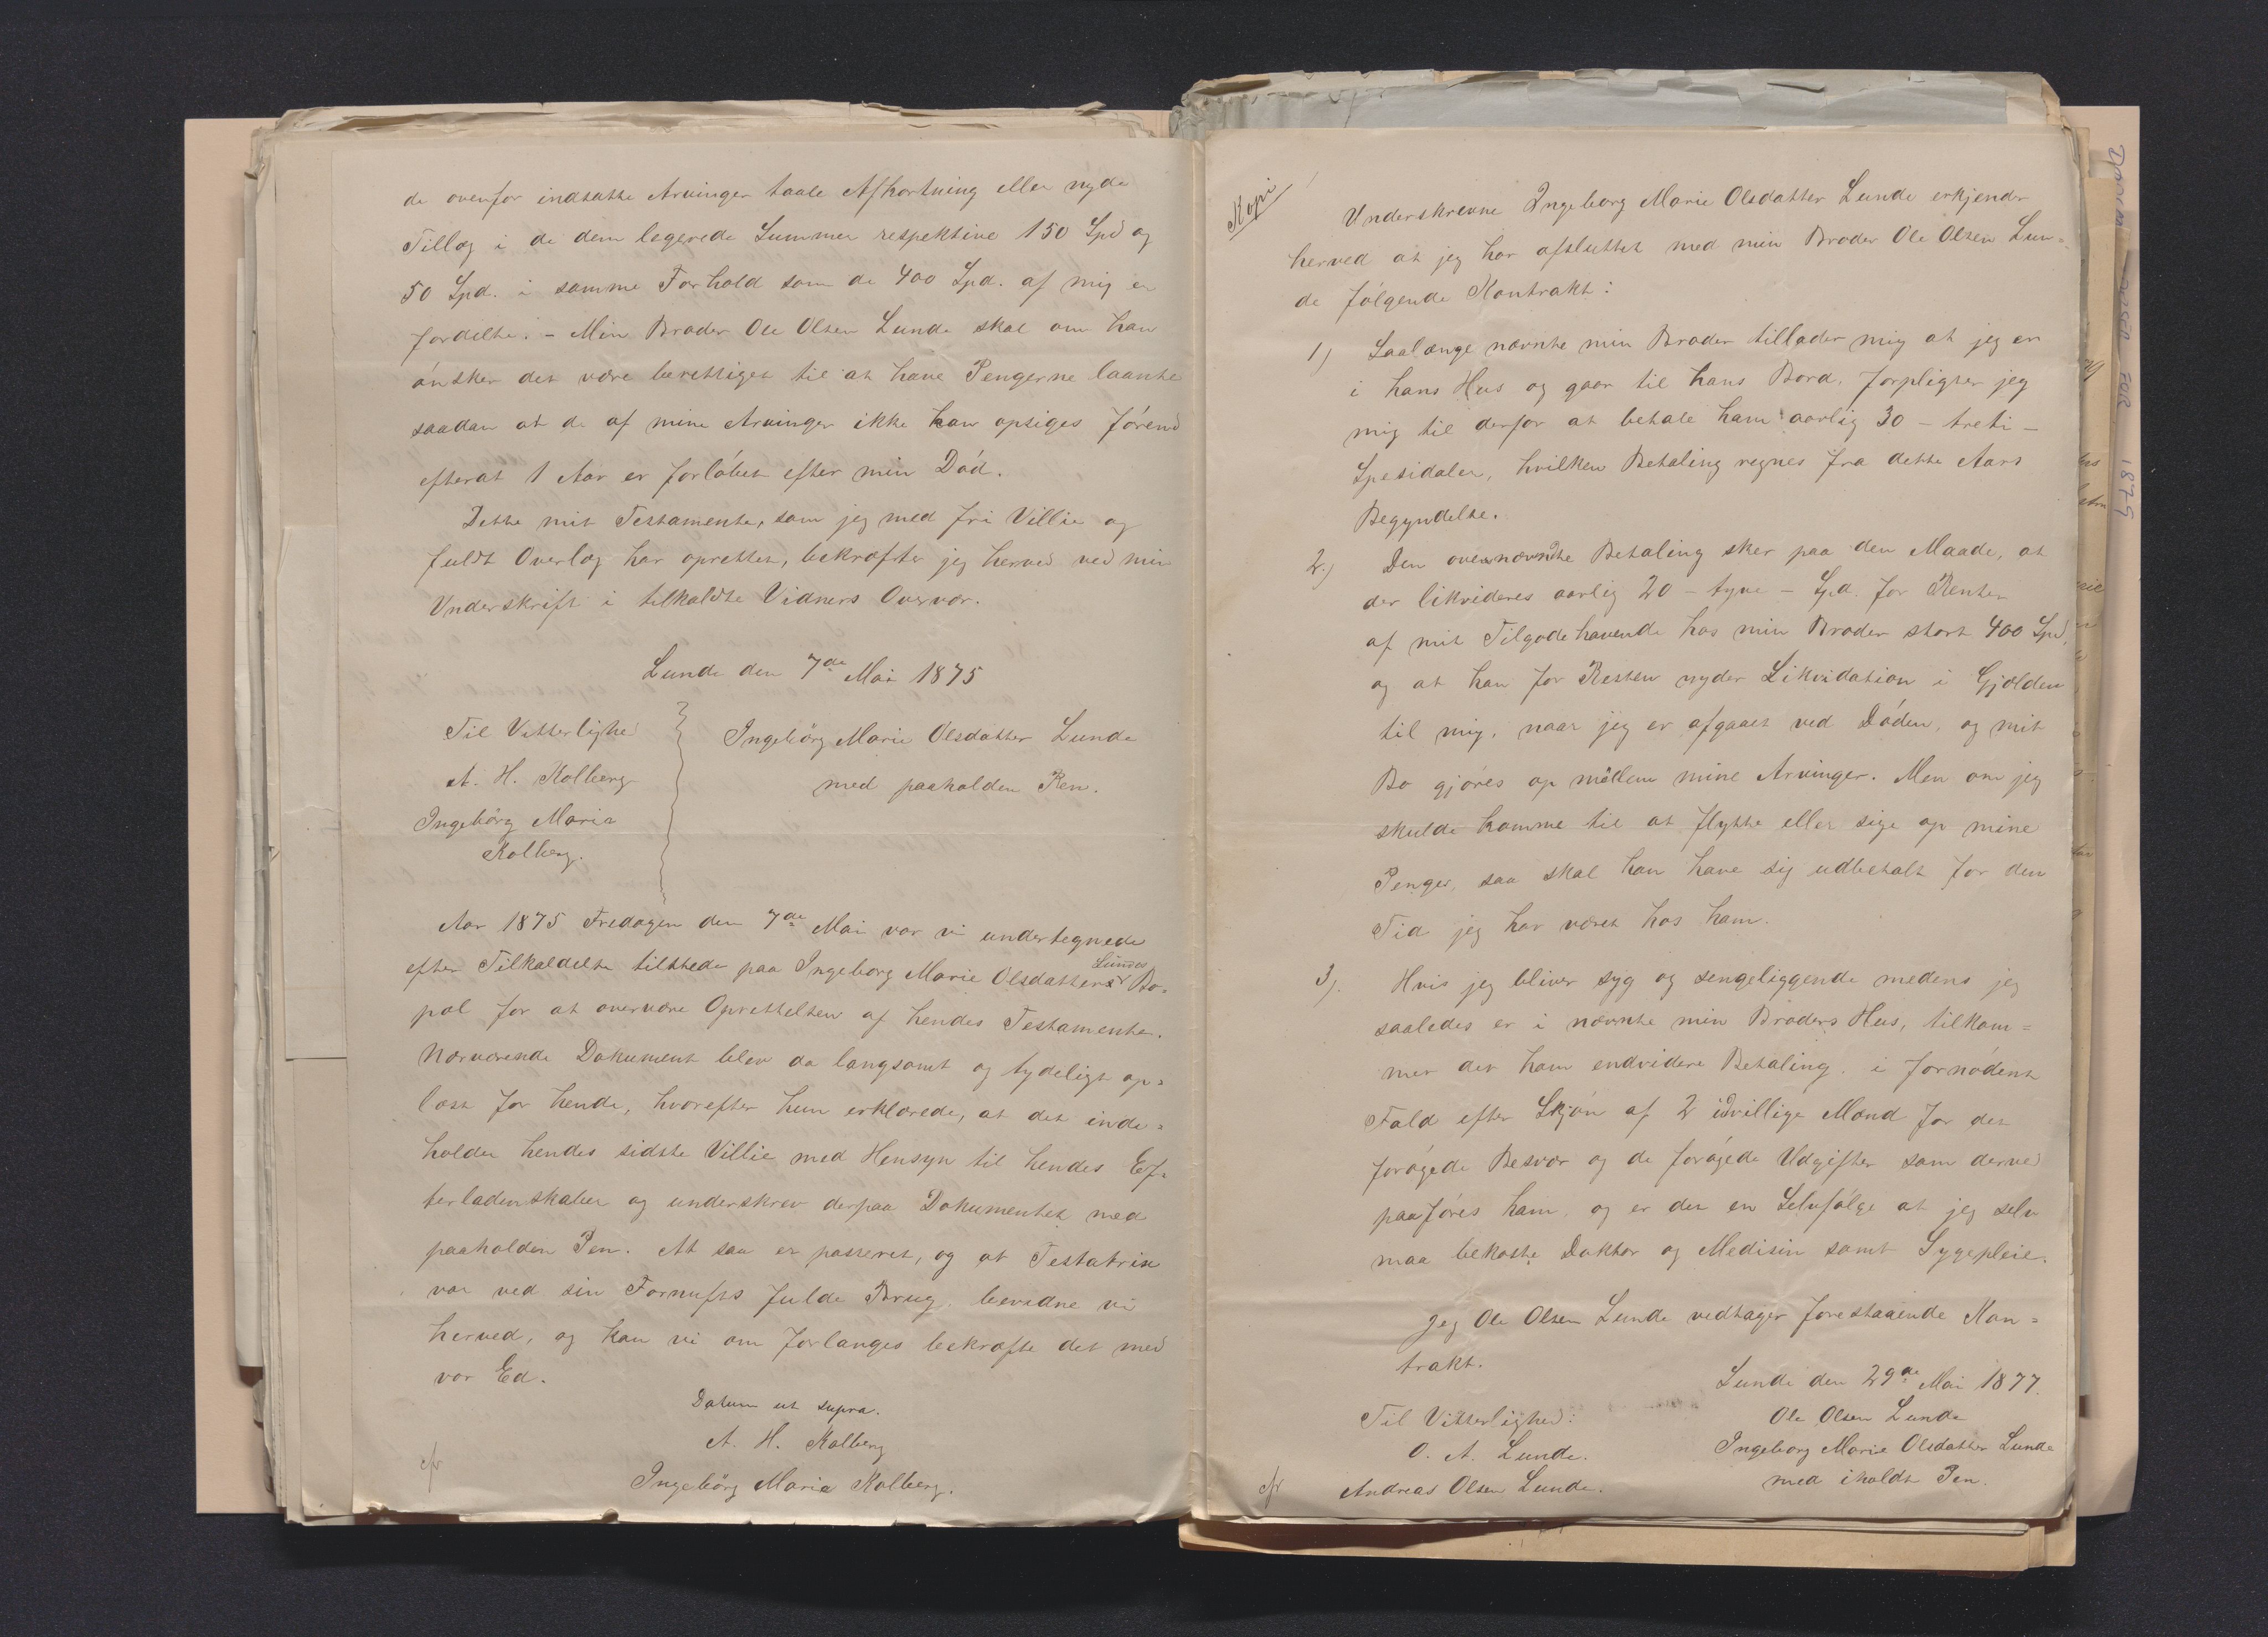 de ovenfor indsatte Arvinger taale Afkortning eller nyde
Tillæg i de dem legerede Summer respektive 150 Spd og
50 Spd. i samme Forhold som de 400 Spd. af mig er
fordelte. – Min Broder Ole Olsen Lunde skal om han
ønsker det være berettiget til at have Pengerne laante
saadan at de af mine Arvinger ikke kan opsiges førend
efterat 1 Aar er forløbet efter min Død.
Dette mit Testamente, som jeg med fri Villie og
fuldt Overlæg har oprettet, bekræfter jeg herved ved min
Underskrift i tilkaldte Vidners Overvær.
Lunde den 7de Mai 1875
Til Vitterlighed
A. H. Kolberg
Ingebörg Maria
Kolberg.
Ingebörg Marie Olsdatter Lunde
med paaholden Pen.
Aar 1875 Fredagen den 7de Mai var vi undertegnede
efter Tilkaldelse tilstede paa Ingeborg Marie Olsdatters Lundes Bo=
pæl for at overvære Oprettelsen af hendes Testamente.
Nærværende Dokument blev da langsomt og tydeligt op=
læst for hende, hvorefter hun erklærede, at det inde=
holder hendes sidste Villie med Hensyn til hendes Ef=
terladenskaber og underskrev derpaa Dokumentet med
paaholden Pen. At saa er passeret, og at Testatrix
var ved sin Fornufts fulde Brug, bevidne vi
herved, og kan vi om forlanges bekræfte det med
vor Ed.
Datum ut supra.
A. H. Kolberg
Ingebörg Maria Kolberg.
cfr
Kopi
Underskrevne Ingeborg Marie Olsdatter Lunde erkjender
herved at jeg har afsluttet med min Broder Ole Olsen Lun=
de følgende Kontrakt:
1) Saalænge nævnte min Broder tillader mig at jeg er
i hans Hus og gaar til hans Bord, forpligter jeg
mig til derfor at betale ham aarlig 30 – treti –
Spesidaler, hvilken Betaling regnes fra dette Aars
Begyndelse.
2.) Den overnævnte Betaling sker paa den Maade, at
der likvideres aarlig 20 – tyve – Spd. for Renten
af mit Tilgodehavende hos min Broder stort 400 Spd,
og at han for Resten nyder Likvidation i Gjælden
til mig, naar jeg er afgaaet ved Døden, og mit
Bo gjøres op mellem mine Arvinger. Men om jeg
skulde komme til at flytte eller sige op mine
Penger, saa skal han have sig udbetalt for den
Tid jeg har været hos ham.
3). Hvis jeg bliver syg og sengeliggende medens jeg
saaledes er i nævnte min Broders Hus, tilkom=
mer der ham endvidere Betaling, i fornødent
Fald efter Skjøn af 2 uvillige Mænd for det
forøgede Besvær og de forøgede Udgifter som derved
paaføres ham, og er det en Selvfølge at jeg selv
maa bekoste Doktor og Medisin samt Sygepleie.
Jeg Ole Olsen Lunde vedtager forestaaende Kon=
trakt.
Lunde den 29de Mai 1877.
Til Vitterlighed:
O. A. Lunde.
Andreas Olsen Lunde.
Ole Olsen Lunde
Ingeborg Marie Olsdatter Lunde
med iholdt Pen.
cfr
1879